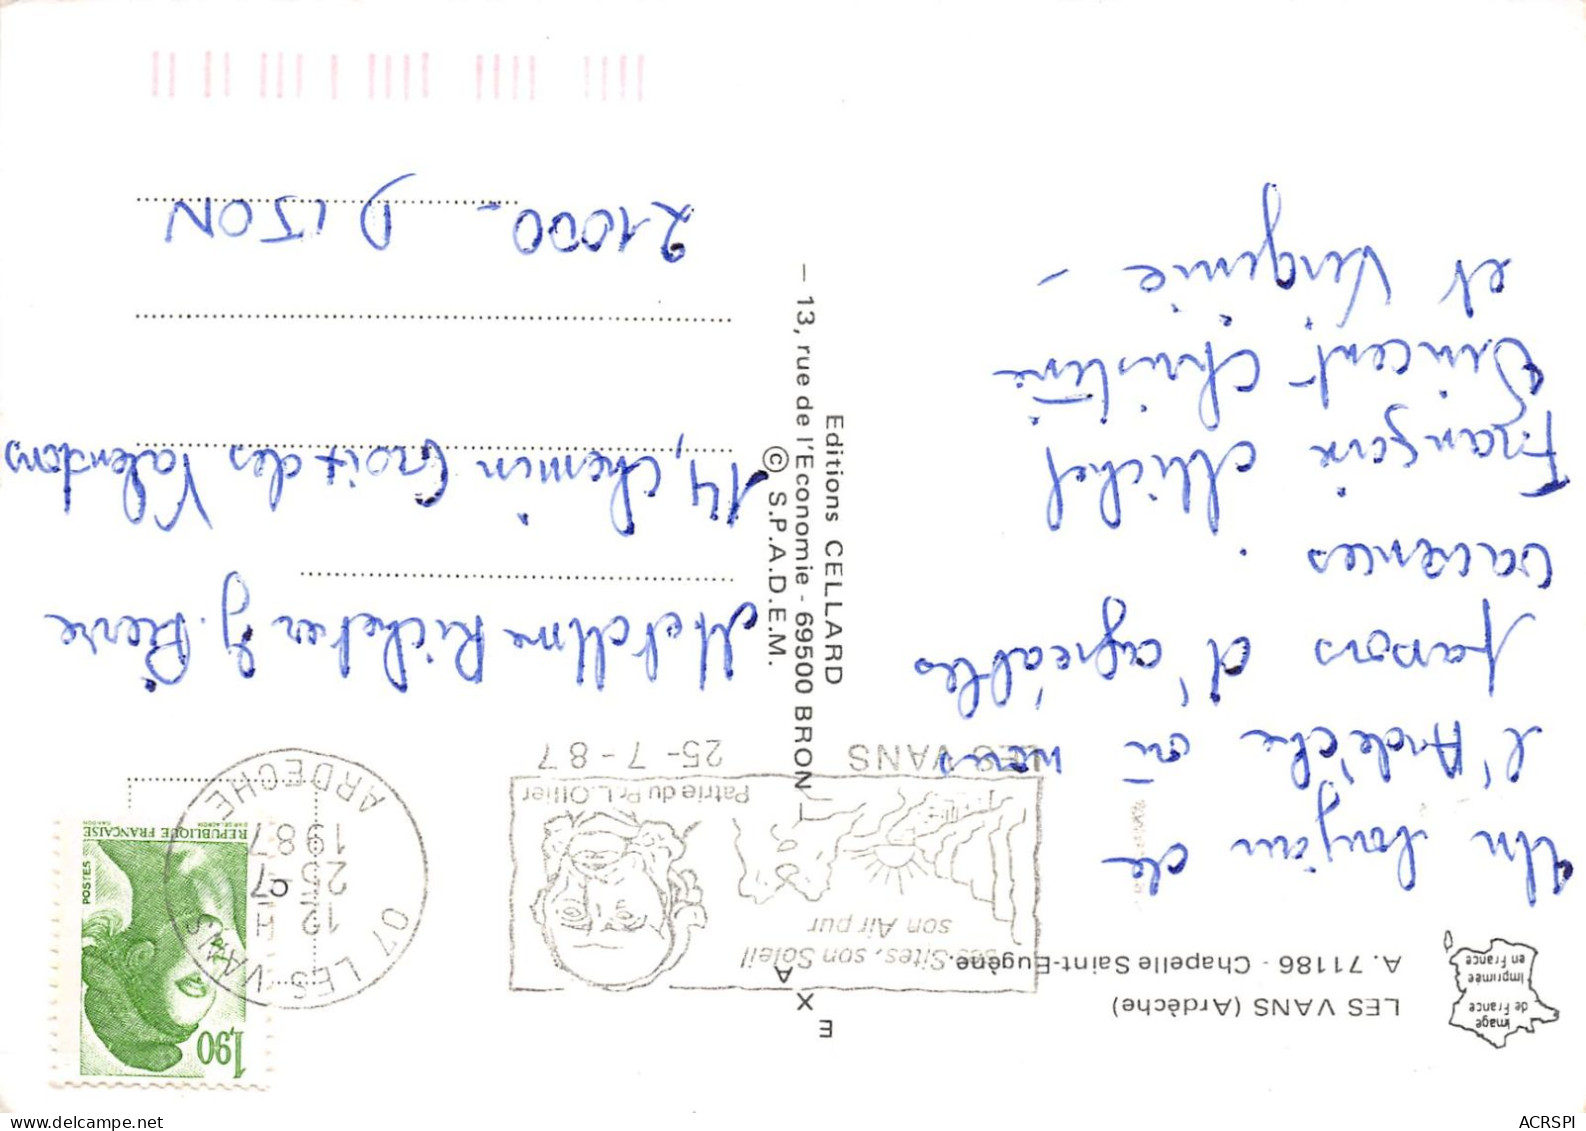 LES VANS (Ardèche)
A. 71186 - Chapelle Saint-Eugène.
image
de France
Imprimée
en France
Un bonjour de
l'Ardèche où nous
passons d'agréables
vacances.
Françoise Michel
Vincent Christine
et Virginie -
E X A
Editions CELLARD
- 13, rue de l'Economie - 69500 BRON -
© S.P.A.D.E.M.
Ses Sites, son Soleil
son Air pur
Patrie du Pr L. Ollier
LES VANS 25-7-87
07 LES VANS
12 H
25-7
1987
07
ARDECHE
1,90
POSTES
REPUBLIQUE FRANÇAISE
M et Mme Richetier J. Pierre
14, Chemin Croix des Valendons
21000 - DIJON
ACRSPI